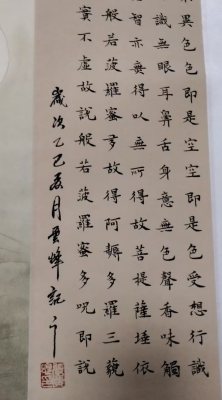 不異色色即是空空即是色受想行識
識無眼耳鼻舌身意無色聲香味觸
智亦無得以無所得故菩提薩埵依
般若菠羅蜜多故得阿耨多羅三藐
實不虛故說般若菠羅蜜多咒即說
歲次乙巳夏月雲峰